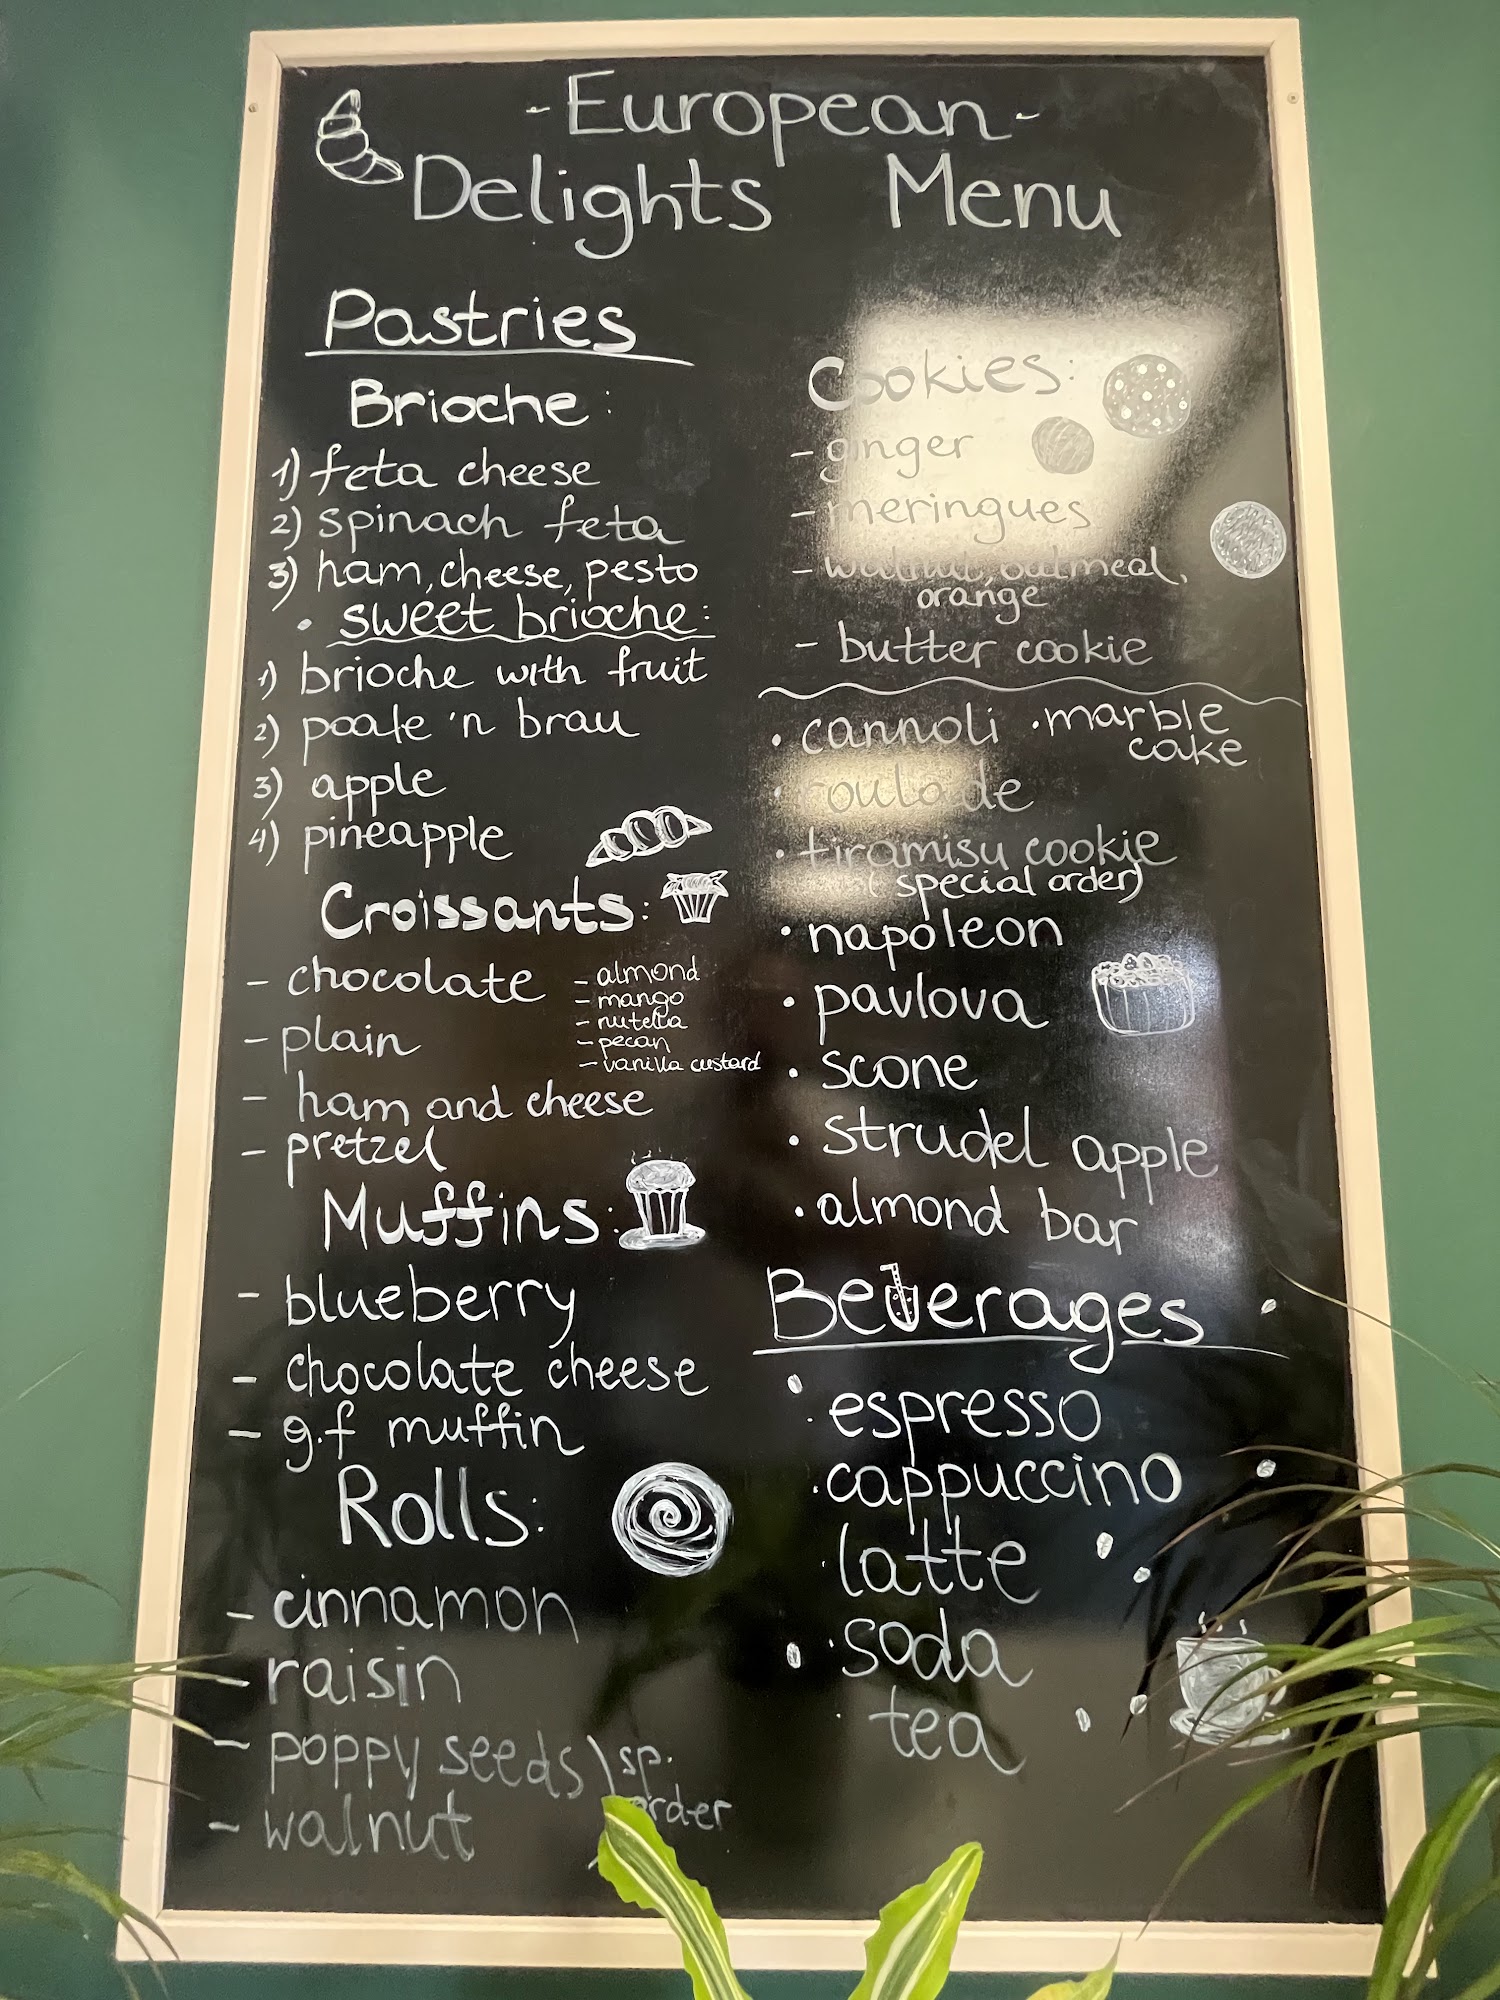 -European-
Delights Menu
Pastries
Brioche:
1) feta cheese
2) spinach feta
3) ham, cheese, pesto
• sweet brioche:
1) brioche with fruit
2) poale 'n brau
3) apple
4) pineapple
Croissants:
- chocolate
- plain
- ham and cheese
- pretzel
- almond
- mango
- nutella
- pecan
- vanilla custard
Muffins:
- blueberry
- chocolate cheese
- g.f muffin
Rolls:
- cinnamon
- raisin
- poppy seeds
- walnut
) sp.
order
Cookies:
- ginger
- meringues
- walnut, oatmeal,
orange
- butter cookie
• cannoli
• marble
cake
• roulade
• tiramisu cookie
(special order)
• napoleon
• pavlova
• scone
• strudel apple
• almond bar
Beverages
• espresso
• cappuccino
• latte
• soda
• tea